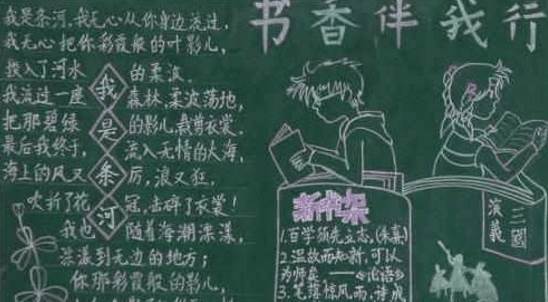 书香伴我行
我是条河，我无心从你身边流过，
我无心把你彩霞般的叶影儿，
揉入了河水的柔波。
我流过一座森林，柔波荡地，
把那碧绿的影儿裁剪衣裳。
最后我终于，流入无情的大海，
海上的风又厉，浪又狂，
吹折了花冠，击碎了衣裳！
我也随着海潮漂漾，
漂漾到无边的地方；
你那彩霞般的影儿，
我是条河
新书架
1.百学须先立志。(朱熹)
2.温故而知新，可以
为师矣——《论语》
3.笔落惊风雨，诗成
三國
演義